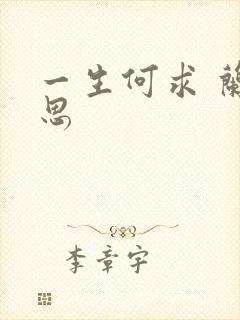 一生何求 蘭
思
李章宇